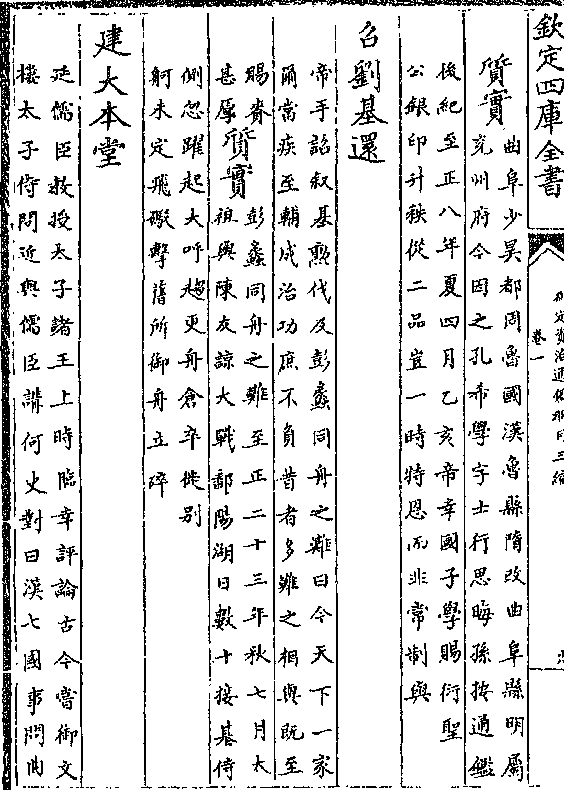 欽定四庫全書
卷一
質實曲阜少昊都周魯國漢魯縣隋改曲阜縣明屬
兖州府今因之孔希學字士行思晦孫按通鑑
後紀至正八年夏四月乙亥帝幸國子學賜衍聖
公銀印升秩從二品豈一時特恩而非常制與
召劉基還
帝手詔叙基勲伐及彭蠡同舟之難曰今天下一家
爾當疾至輔成治功庶不負昔者多難之相與既至
賜賚甚厚質實彭蠡同舟之難至正二十三年秋七月太
祖與陳友諒大戰鄱陽湖日數十接基侍
側忽躍起大呼趣更舟倉卒徙别
舸未定飛礮擊舊所御舟立碎
建大本堂
延儒臣教授太子諸王上時臨幸評論古今嘗御文
樓太子侍問近與儒臣講何史對曰漢七國事問曲